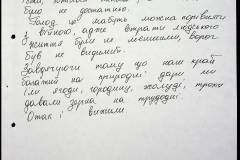 було не достатньо.
Голод це мабуть можна порівняти
з війною, адже втрати людського
життя були не меншими, ворог
був не видимий.
Завдячуючи тому що наш край
багатий на природні дари, ми
їли ягоди, городину, жолуді, трохи
давали зерна на трудодні.
Отак і вижили.